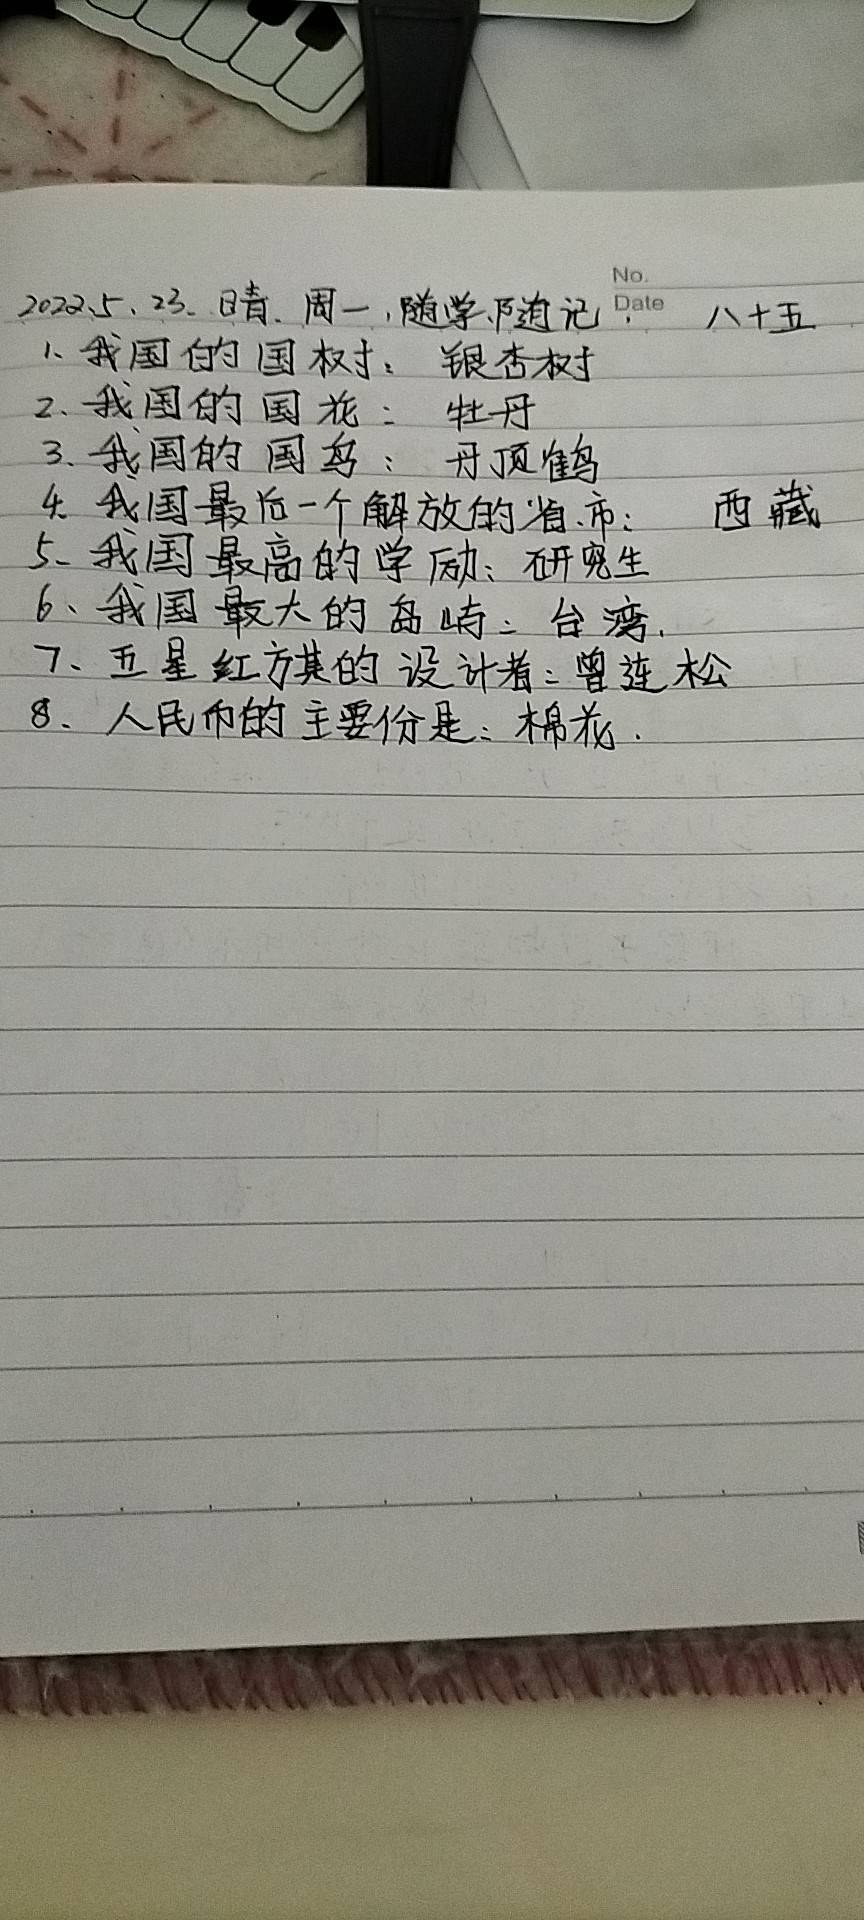 No.
Date
2022.5.23.晴.周一,随学随记: 八十五
1、我国的国树: 银杏树
2、我国的国花: 牡丹
3、我国的国鸟: 丹顶鹤
4、我国最后一个解放的省.市: 西藏
5、我国最高的学励: 研究生
6、我国最大的岛崎: 台湾.
7、五星红方其的设计者: 曾连松
8、人民币的主要份是: 棉花.